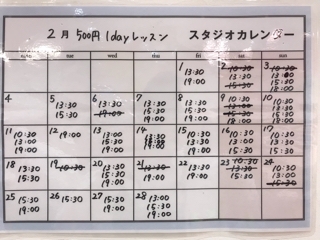 2月 500円 1dayレッスン スタジオカレンダー
mon tue wed thu fri sat sun
1 13:30 19:00
2 10:30 13:30 15:30
3 10:30 13:00 15:30 18:00
4
5 13:30 15:30
6 13:30 19:00
7 13:30 15:30 19:00
8 13:30 15:30 19:00
9
10
11 10:30 13:30 15:30 19:00
12 19:00
13 13:00 15:30 19:00
14
15 10:30 13:30 19:00
16 10:30 13:30 15:30
17 10:30
18 13:30 15:30
19 10:30
20 13:30 15:30 19:00
21 13:30 19:00
22 13:30 19:00
23 10:30 13:30 15:30
24 10:30 13:00 15:30
25 15:30 19:00
26 15:30
27 15:30 19:00
28 13:00 15:30 19:00